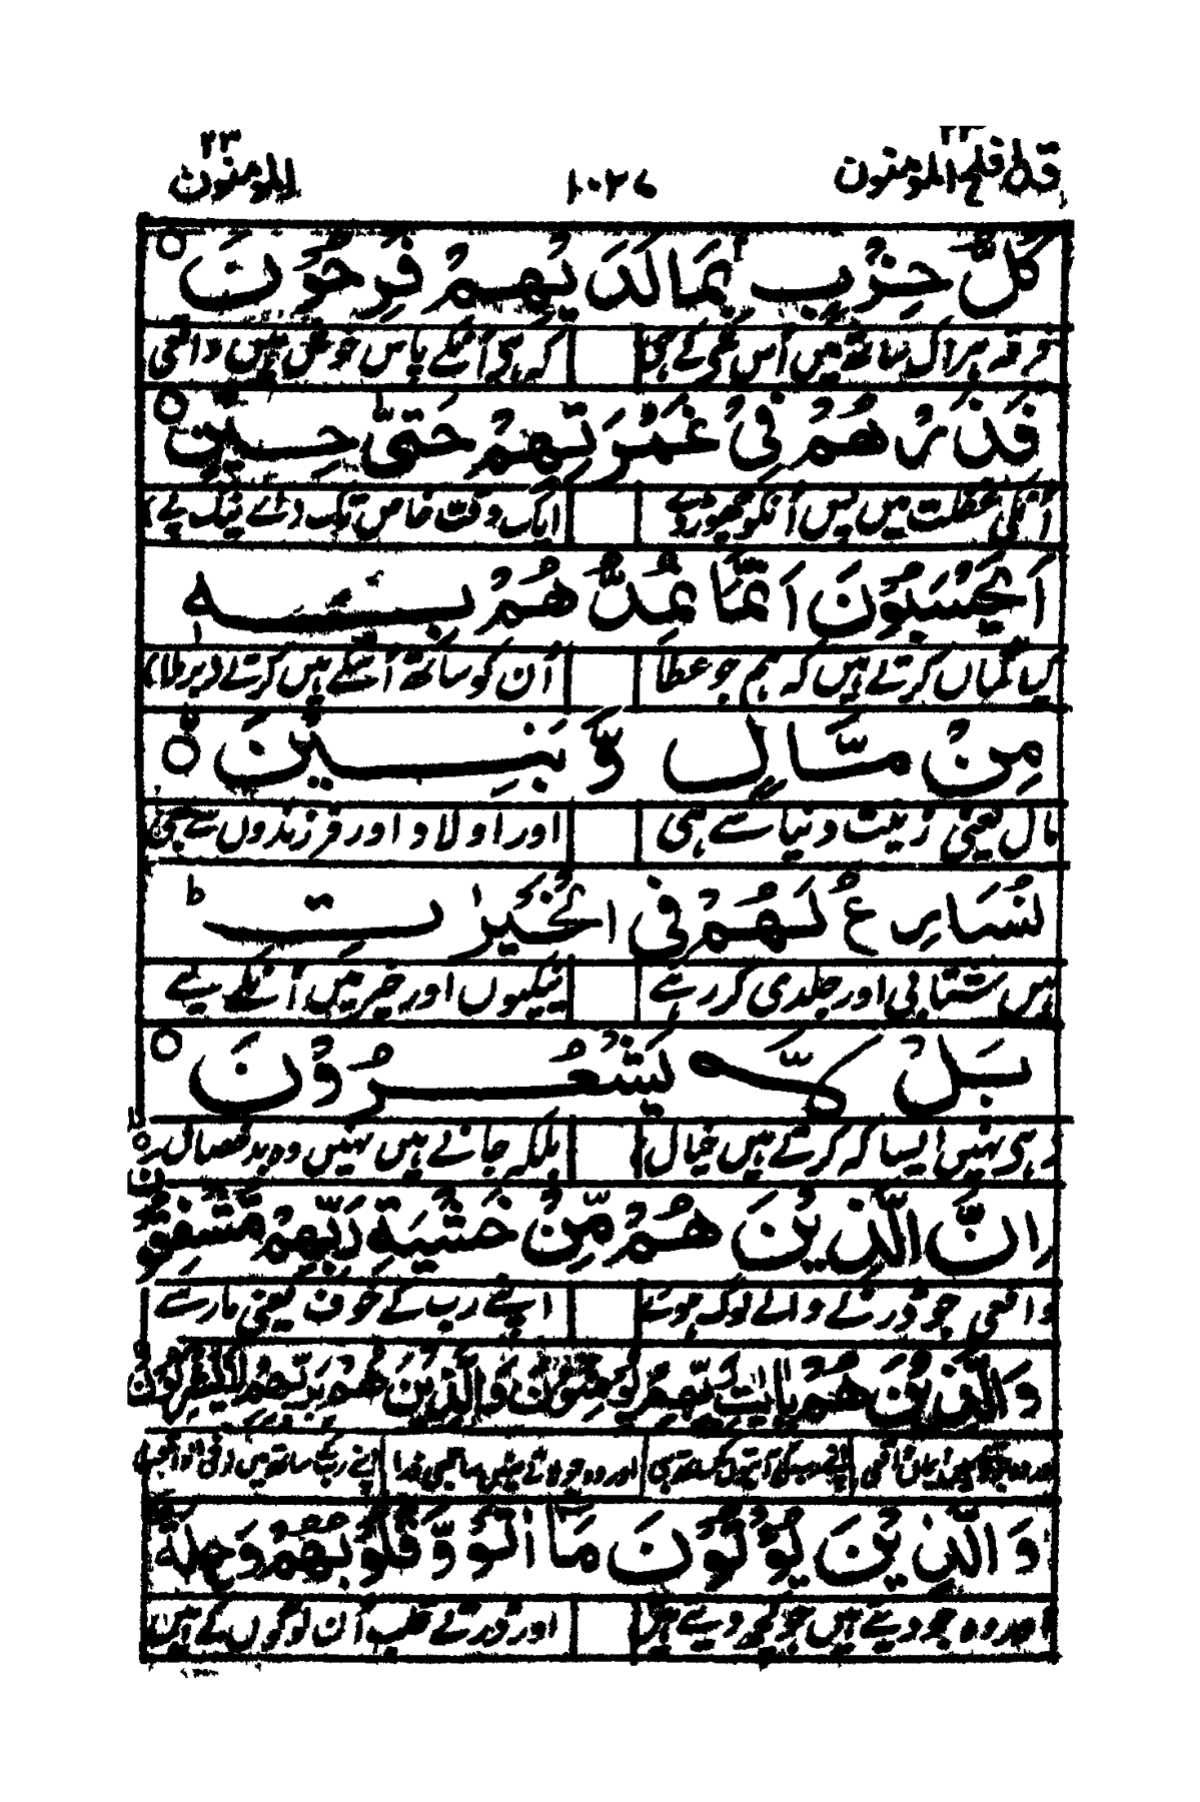 قد افلح المؤمنون ۱۰۲۷ المؤمنون ۲۳
كُلُّ حِزْبٍ بِمَا لَدَيْهِمْ فَرِحُوْنَ ۝
فرقہ ہر اک ساتھ میں اُس کے ہی کہ ہے اُنکے پاس خوش ہیں واقعی
فَذَرْهُمْ فِیْ غَمْرَتِهِمْ حَتّٰی حِيْنٍ ۝
اُنکی غفلت میں پس اُنکو چھوڑدے ایک وقت خاص تک
اَيَحْسَبُوْنَ اَنَّمَا نُمِدُّهُمْ بِهٖ
کیا گماں کرتے ہیں کہ ہم جو عطا اُن کو ساتھ اُسکے ہیں کرتے (برملا)
مِنْ مَّالٍ وَّبَنِيْنَ ۝
مال یعنی زینت دنیا سے ہی اور اولاد اور فرزندوں سے بھی
نُسَارِعُ لَهُمْ فِی الْخَيْرٰتِ ؕ
ہیں شتابی اور جلدی کر رہے نیکیوں اور خیر میں اُنکے لیے
بَلْ لَّا يَشْعُرُوْنَ ۝
ہی نہیں ایسا کہ کرتے ہیں خیال بلکہ جانے ہیں نہیں وہ بدخصال
اِنَّ الَّذِيْنَ هُمْ مِّنْ خَشْيَةِ رَبِّهِمْ مُّشْفِقُوْنَ ۝
واقعی جو ڈرنے والے لوگ ہوئے اپنے رب کے خوف یعنی مارے
وَالَّذِيْنَ هُمْ بِاٰيٰتِ رَبِّهِمْ يُؤْمِنُوْنَ وَالَّذِيْنَ هُمْ بِرَبِّهِمْ لَا يُشْرِكُوْنَ ۝
اور وہ جو اپنے رب کی آیتوں اور وہ جو لاتے نہیں ساجھی ذرا اپنے رب کے ساتھ میں
وَالَّذِيْنَ يُؤْتُوْنَ مَاۤ اٰتَوْا وَّقُلُوْبُهُمْ وَجِلَةٌ
اور وہ جو دیتے ہیں جو کچھ دیتے ہیں اور ڈرتے قلب اُن لوگوں کے ہیں